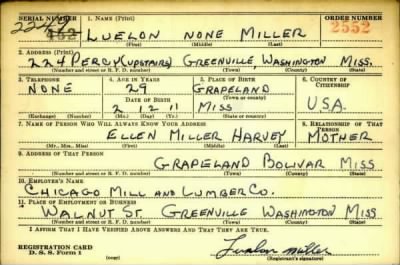 SERIAL NUMBER 1. NAME (Print) ORDER NUMBER
2242 152 LUELON NONE MILLER 2552
(First) (Middle) (Last)
2. ADDRESS (Print)
224 PERCY (UPSTAIRS) GREENVILLE, WASHINGTON MISS.
(Number and street or R. F. D. number) (Town) (County) (State)
3. TELEPHONE 4. AGE IN YEARS 5. PLACE OF BIRTH 6. COUNTRY OF CITIZENSHIP
NONE 29 GRAPELAND
DATE OF BIRTH (Town or county)
2 12 11 MISS U.S.A.
(Mo.) (Day) (Yr.) (State or country)
7. NAME OF PERSON WHO WILL ALWAYS KNOW YOUR ADDRESS 8. RELATIONSHIP OF THAT PERSON
ELLEN MILLER HARVEY MOTHER
(Mr., Mrs., Miss) (First) (Middle) (Last)
9. ADDRESS OF THAT PERSON
GRAPELAND BOLIVAR MISS
(Number and street or R. F. D. number) (Town) (County) (State)
10. EMPLOYER'S NAME
CHICAGO MILL AND LUMBER CO.
11. PLACE OF EMPLOYMENT OR BUSINESS
WALNUT ST. GREENVILLE WASHINGTON MISS
(Number and street or R. F. D. number) (Town) (County) (State)
I AFFIRM THAT I HAVE VERIFIED ABOVE ANSWERS AND THAT THEY ARE TRUE.
REGISTRATION CARD
D. S. S. Form 1 (over) Luelon Miller
(Registrant's signature)